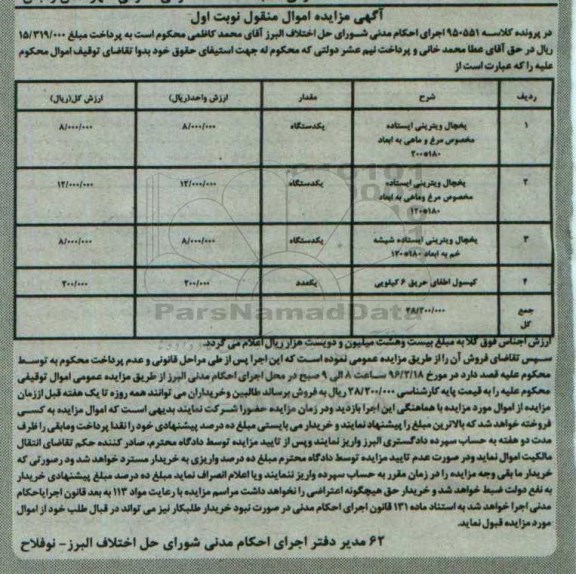 آگهی مزایده اموال منقول نوبت اول
در پرونده کلاسه ۹۵۰۵۵۱ اجرای احکام مدنی شورای حل اختلاف البرز آقای محمد کاظمی محکوم است به پرداخت مبلغ ۱۵/۳۱۹/۰۰۰
ریال در حق آقای عطا محمد خانی و پرداخت نیم عشر دولتی که محکوم له جهت استیفای حقوق خود بدوا تقاضای توقیف اموال محکوم
علیه را که عبارت است از
ردیف شرح مقدار ارزش واحد(ریال) ارزش کل(ریال)
۱ یخچال ویترینی ایستاده یکدستگاه ۸/۰۰۰/۰۰۰ ۸/۰۰۰/۰۰۰
مخصوص مرغ و ماهی به ابعاد
۲۰۰*۱۸۰
۲ یخچال ویترینی ایستاده یکدستگاه ۱۲/۰۰۰/۰۰۰ ۱۲/۰۰۰/۰۰۰
مخصوص مرغ وماهی به ابعاد
۱۲۰*۱۸۰
۳ یخچال ویترینی ایستاده شیشه یکدستگاه ۸/۰۰۰/۰۰۰ ۸/۰۰۰/۰۰۰
خم به ابعاد ۱۸۰*۱۲۰
۴ کپسول اطفای حریق ۶ کیلویی یکعدد ۲۰۰/۰۰۰ ۲۰۰/۰۰۰
جمع ۲۸/۲۰۰/۰۰۰
کل
ParsNamadData
ارزش اجناس فوق کلا به مبلغ بیست وهشت میلیون و دویست هزار ریال اعلام می گردد.
سپس تقاضای فروش آن را از طریق مزایده عمومی نموده است که این اجرا پس از طی مراحل قانونی و عدم پرداخت محکوم به توسط
محکوم علیه قصد دارد در مورخ ۹۶/۳/۱۸ ساعت ۸ الی ۹ صبح در محل اجرای احکام مدنی البرز از طریق مزایده عمومی اموال توقیفی
محکوم علیه را به قیمت پایه کارشناسی ۲۸/۲۰۰/۰۰۰ ریال به فروش برساند طالبین وخریداران می توانند همه روزه تا یک هفته قبل اززمان
مزایده از اموال مورد مزایده با هماهنگی این اجرا بازدید ودر زمان مزایده حضورا شرکت نمایند بدیهی است که اموال مزایده به کسی
فروخته خواهد شد که بالاترین مبلغ را پیشنهاد نمایند و خریدار می بایستی مبلغ ده درصد پیشنهادی خود را نقدا پرداخت ومابقی را ظرف
مدت دو هفته به حساب سپرده دادگستری البرز واریز نمایند وپس از تایید مزایده توسط دادگاه محترم، صادر کننده حکم تقاضای انتقال
مالکیت اموال نماید ودر صورت عدم تایید مزایده توسط دادگاه محترم مبلغ ده درصد واریزی به خریدار مسترد خواهد شد ود رصورتی که
خریدار ما بقی وجه مزایده را در زمان مقرر به حساب سپرده واریز ننمایند ویا اعلام انصراف نماید مبلغ ده درصد مبلغ پیشنهادی خریدار
به نفع دولت ضبط خواهد شد و خریدار حق هیچگونه اعتراضی را نخواهد داشت مراسم مزایده با رعایت مواد ۱۱۳ به بعد قانون اجرایاحکام
مدنی اجرا خواهد شد به استناد ماده ۱۳۱ قانون اجرای احکام مدنی در صورت نبود خریدار طلبکار نیز می تواند در قبال طلب خود از اموال
مورد مزایده قبول نماید.
۶۲ مدیر دفتر اجرای احکام مدنی شورای حل اختلاف البرز - نوفلاح